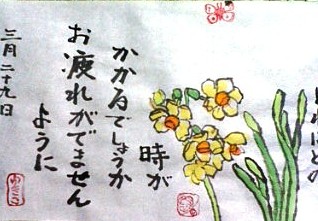 どれほどの
時が
かかるでしょうか
お疲れがでません
ように
三月二十九日